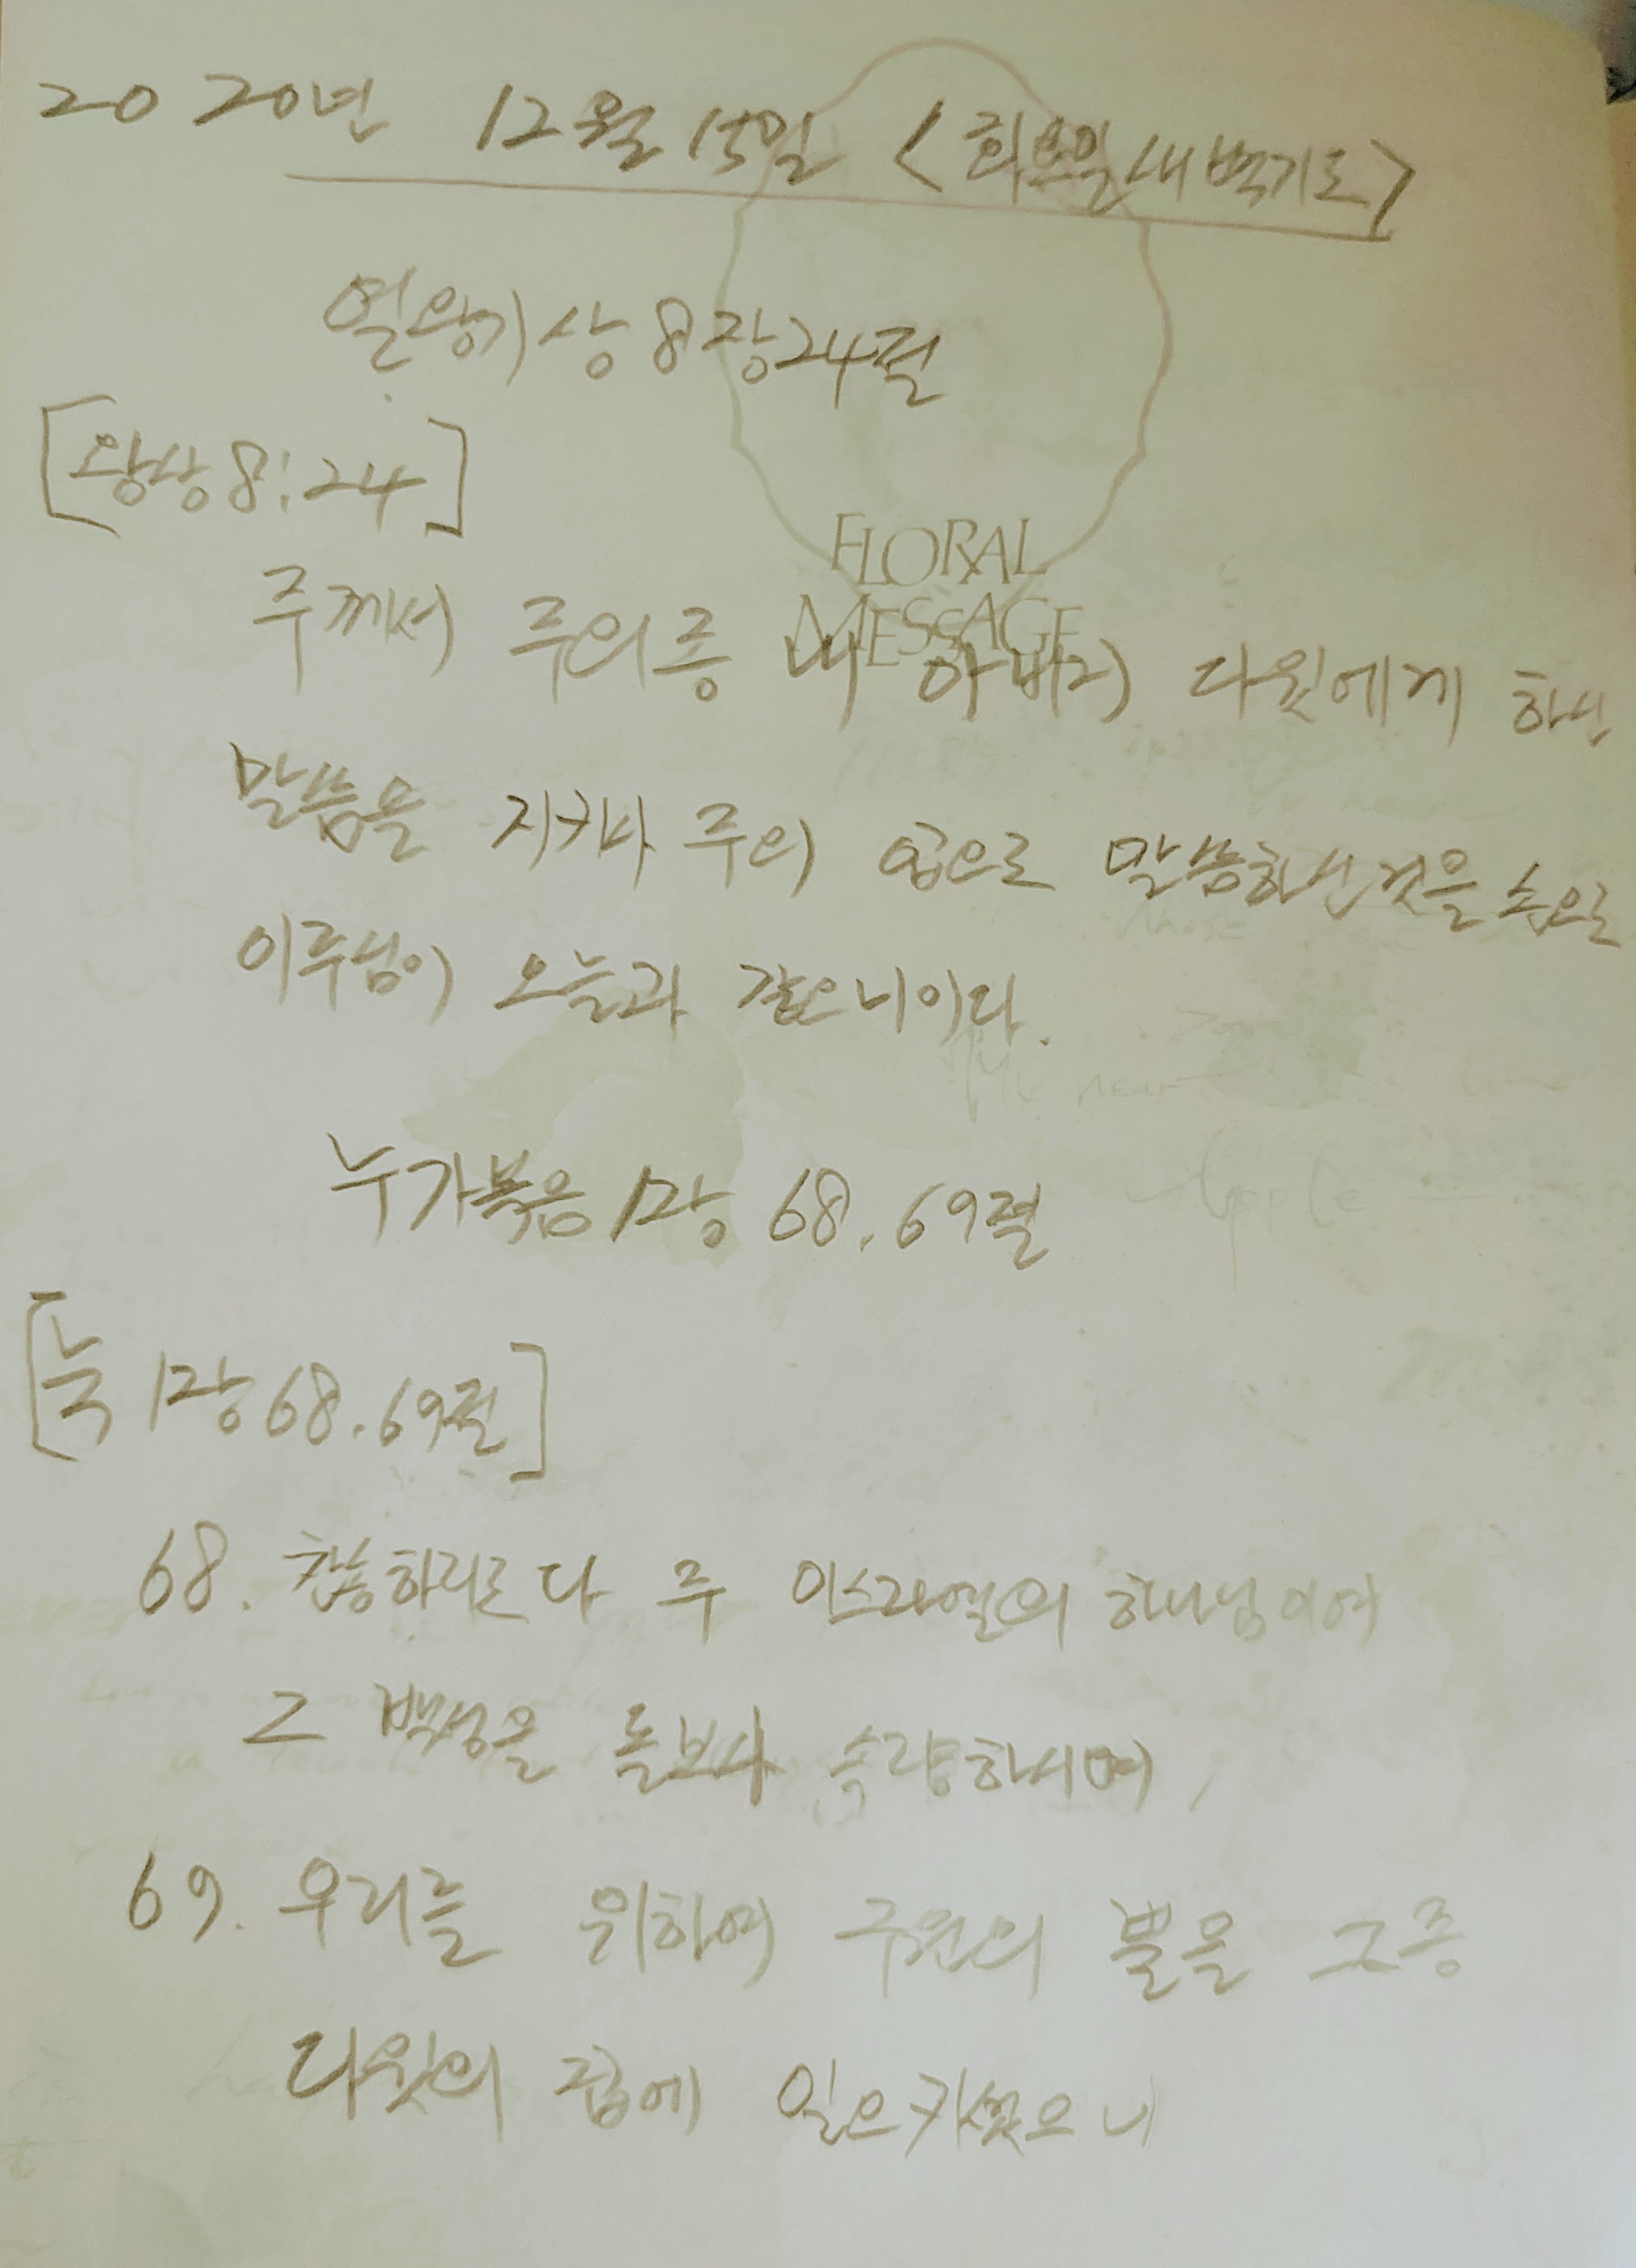 2020년 12월 15일 <화요일 새벽기도>
열왕기상 8장 24절
[왕상 8:24]
FLORAL
MESSAGE
주께서 주의 종 내 아버지 다윗에게 하신
말씀을 지키사 주의 입으로 말씀하신 것을 손으로
이루심이 오늘과 같으니이다.
누가복음 1장 68. 69절
[눅 1장 68. 69절]
68. 찬송하리로다 주 이스라엘의 하나님이여
그 백성을 돌보사 속량하시며,
69. 우리를 위하여 구원의 뿔을 그 종
다윗의 집에 일으키셨으니